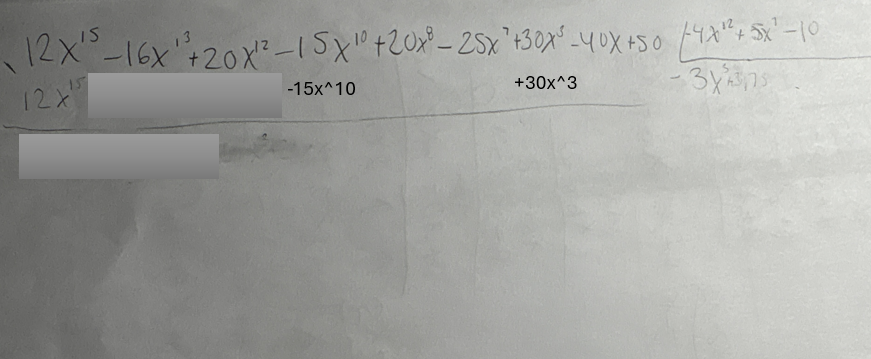 12x¹⁵ -16x¹³ +20x¹² -15x¹⁰ +20x⁸ -25x⁷ +30x³ -40x +50 -4x¹² +5x⁷ -10
12x¹⁵ -15x^10 +30x^3 -3x